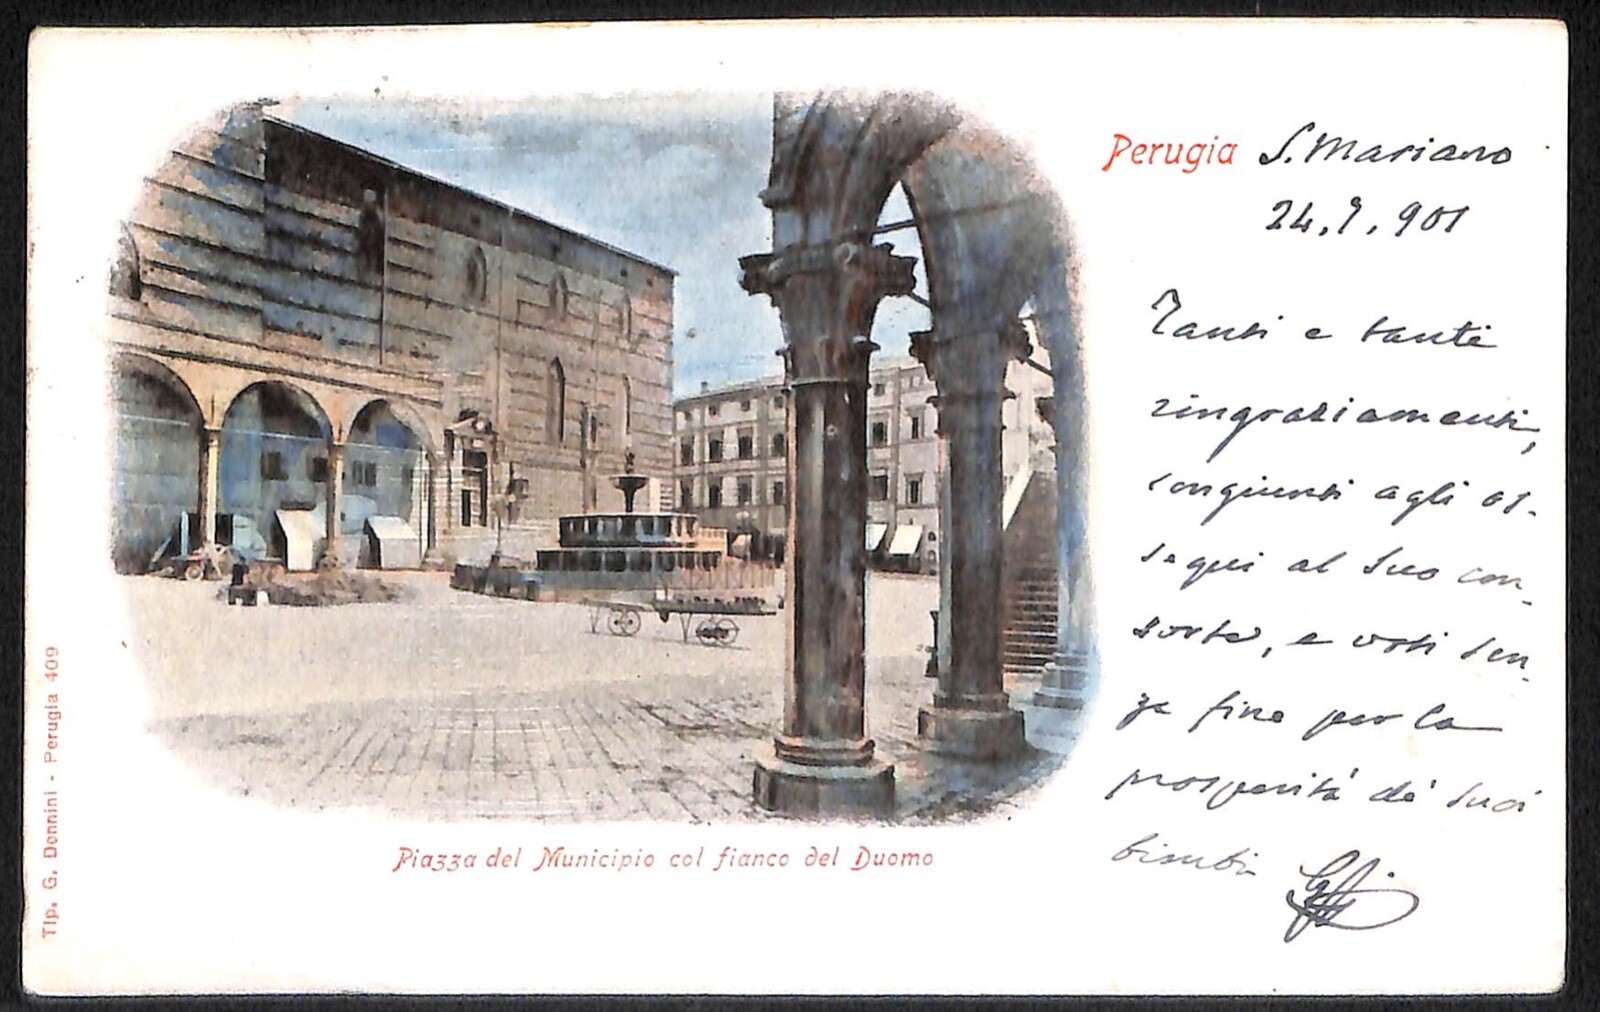 Perugia S. Mariano
24.9.901
Tanti e tanti
ringraziamenti,
congiunti agli os-
sequi al suo con-
sorte, e voti sen-
za fine per la
prosperità de' suoi
bimbi
Piazza del Municipio col fianco del Duomo
Tip. G. Donnini - Perugia 409